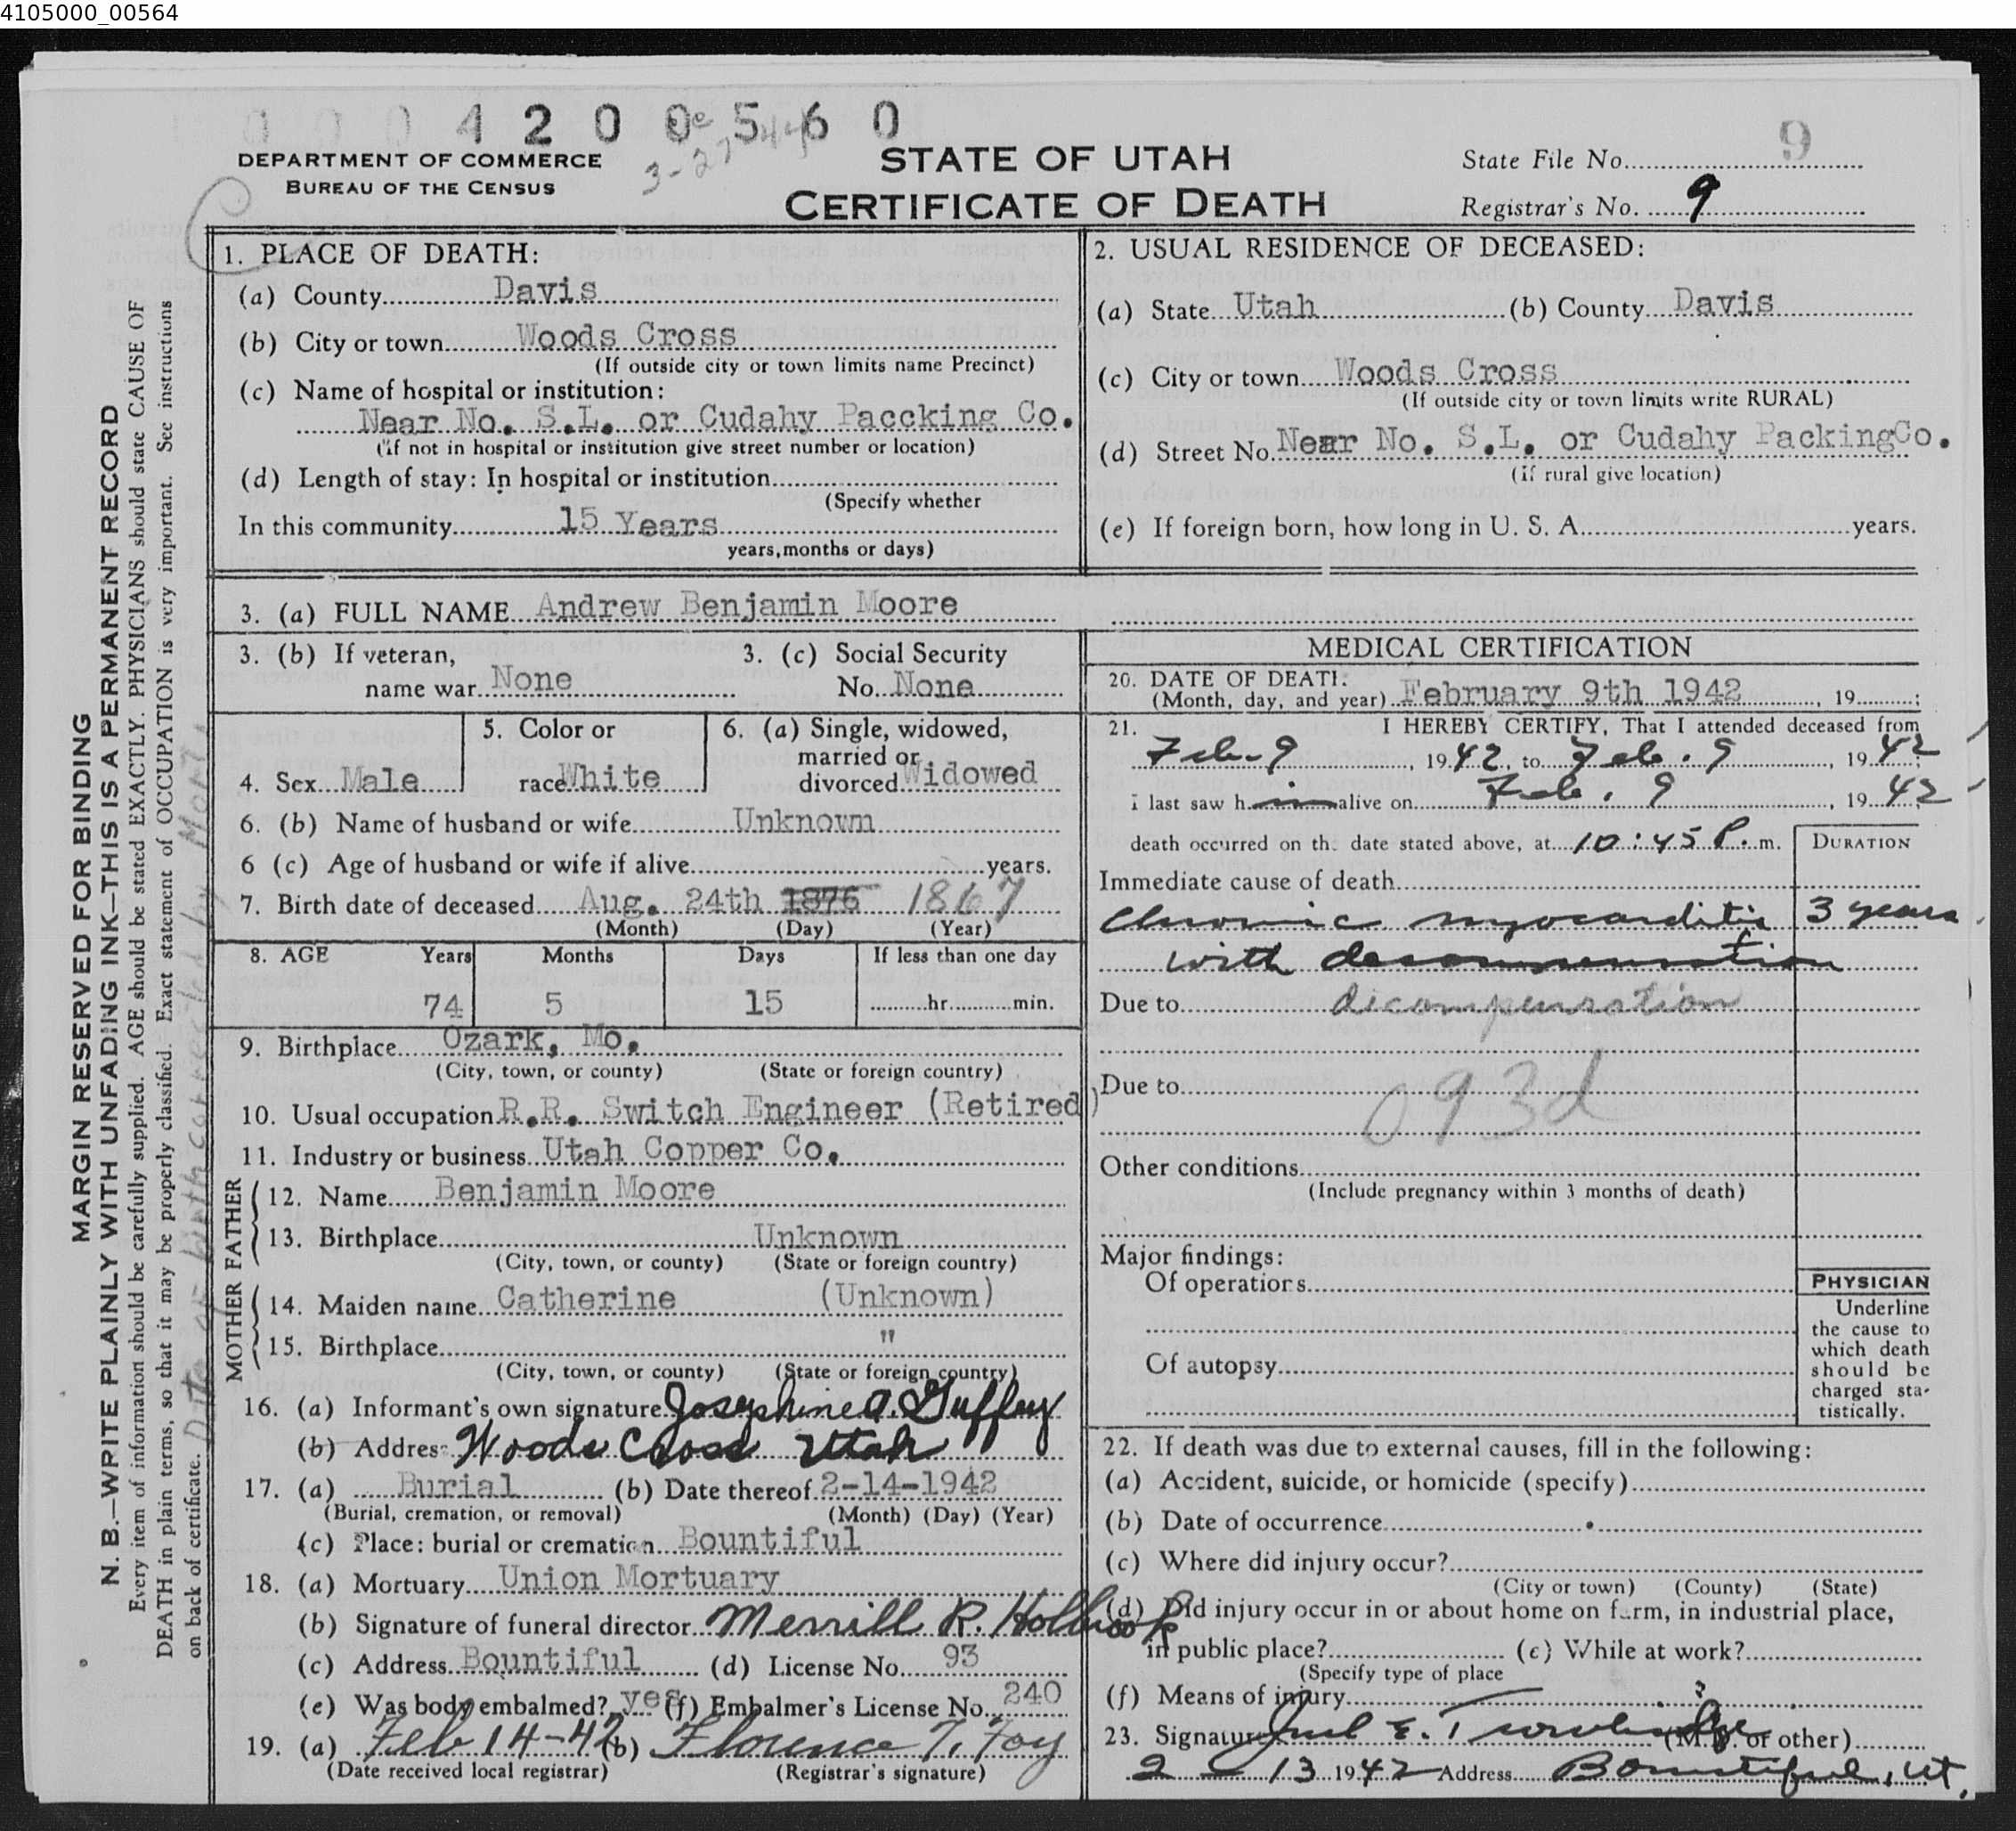 4105000_00564
0 0 0 4 2 0 0 5 6 0
9
3-27
DEPARTMENT OF COMMERCE
BUREAU OF THE CENSUS
STATE OF UTAH
CERTIFICATE OF DEATH
State File No.
Registrar's No. 9
MARGIN RESERVED FOR BINDING
N. B.—WRITE PLAINLY WITH UNFADING INK—THIS IS A PERMANENT RECORD
Every item of information should be carefully supplied. AGE should be stated EXACTLY. PHYSICIANS should state CAUSE OF
DEATH in plain terms, so that it may be properly classified. Exact statement of OCCUPATION is very important. See instructions
on back of certificate.
Date of birth corrected by Mort.
1. PLACE OF DEATH:
(a) County Davis
(b) City or town Woods Cross
(If outside city or town limits name Precinct)
(c) Name of hospital or institution:
Near No. S.L. or Cudahy Paccking Co.
(If not in hospital or institution give street number or location)
(d) Length of stay: In hospital or institution
(Specify whether
In this community 15 Years
years, months or days)
2. USUAL RESIDENCE OF DECEASED:
(a) State Utah (b) County Davis
(c) City or town Woods Cross
(If outside city or town limits write RURAL)
(d) Street No. Near No. S.L. or Cudahy PackingCo.
(If rural give location)
(e) If foreign born, how long in U. S. A. years.
3. (a) FULL NAME Andrew Benjamin Moore
3. (b) If veteran,
name war None
3. (c) Social Security
No. None
4. Sex Male
5. Color or
race White
6. (a) Single, widowed,
married or
divorced Widowed
6. (b) Name of husband or wife Unknown
6 (c) Age of husband or wife if alive years.
7. Birth date of deceased Aug. 24th 1876 1867
(Month) (Day) (Year)
8. AGE Years Months Days If less than one day
74 5 15 hr. min.
9. Birthplace Ozark, Mo.
(City, town, or county) (State or foreign country)
10. Usual occupation R.R. Switch Engineer (Retired)
11. Industry or business Utah Copper Co.
FATHER
12. Name Benjamin Moore
13. Birthplace Unknown
(City, town, or county) (State or foreign country)
MOTHER
14. Maiden name Catherine (Unknown)
15. Birthplace "
(City, town, or county) (State or foreign country)
16. (a) Informant's own signature Josephine A. Guffey
(b) Address Woods Cross Utah
17. (a) Burial (b) Date thereof 2-14-1942
(Burial, cremation, or removal) (Month) (Day) (Year)
(c) Place: burial or cremation Bountiful
18. (a) Mortuary Union Mortuary
(b) Signature of funeral director Merrill R. Holbrook
(c) Address Bountiful (d) License No. 93
(e) Was body embalmed? yes (f) Embalmer's License No. 240
19. (a) Feb 14-42 (b) Florence T. Foy
(Date received local registrar) (Registrar's signature)
MEDICAL CERTIFICATION
20. DATE OF DEATH
(Month, day, and year) February 9th 1942, 19
21. I HEREBY CERTIFY, That I attended deceased from
Feb-9, 1942, to Feb. 9, 1942
I last saw him alive on Feb. 9, 1942
death occurred on the date stated above, at 10:45 P. m.
DURATION
Immediate cause of death
chronic myocarditis 3 years
with decompensation
Due to decompensation
Due to 093d
Other conditions
(Include pregnancy within 3 months of death)
Major findings:
Of operations
Of autopsy
PHYSICIAN
Underline
the cause to
which death
should be
charged sta-
tistically.
22. If death was due to external causes, fill in the following:
(a) Accident, suicide, or homicide (specify)
(b) Date of occurrence
(c) Where did injury occur?
(City or town) (County) (State)
(d) Did injury occur in or about home on farm, in industrial place,
in public place? (e) While at work?
(Specify type of place
(f) Means of injury
23. Signature E. Trowbridge (M.D. or other)
2-13 1942 Address Bountiful, Ut.